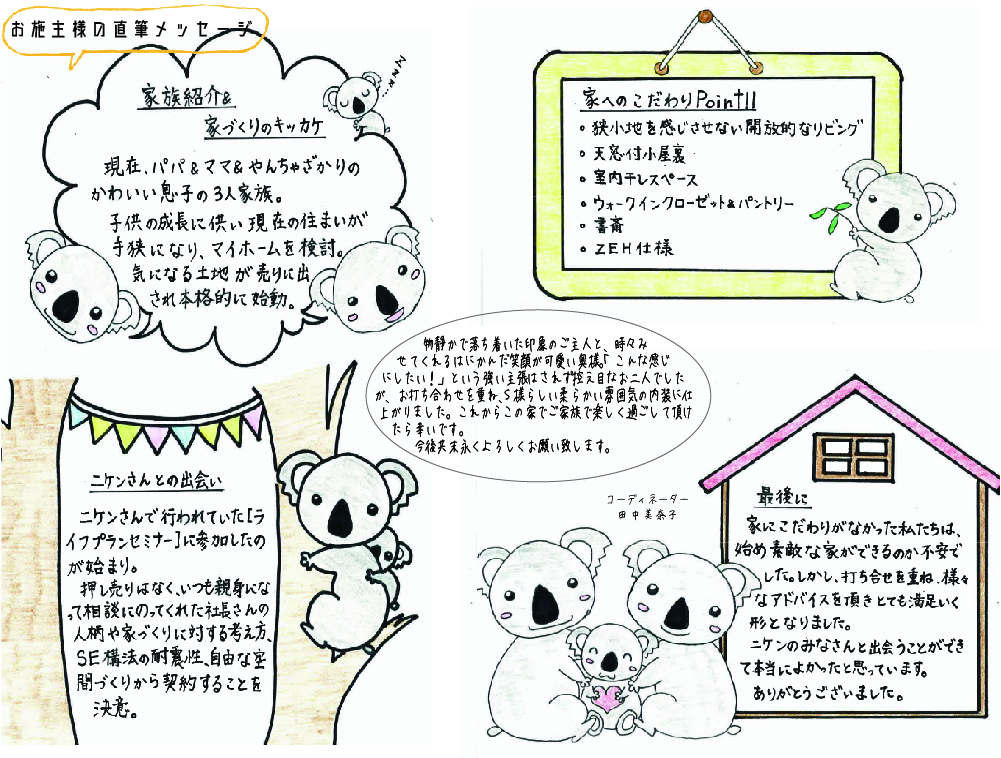 お施主様の直筆メッセージ
家族紹介&
家づくりのキッカケ
現在、パパ&ママ&やんちゃざかりの
かわいい息子の3人家族。
子供の成長に供い現在の住まいが
手狭になり、マイホームを検討。
気になる土地が売りに出
され本格的に始動。
NNN...
家へのこだわりPoint!!
• 狭小地を感じさせない開放的なリビング
• 天窓付小屋裏
• 室内干しスペース
• ウォークインクローゼット&パントリー
• 書斎
• ZEH仕様
物静かで落ち着いた印象のご主人と、時々み
せてくれるはにかんだ笑顔が可愛い奥様。「こんな感じ
にしたい!」という強い主張はされず控え目なお二人でした
が、お打ち合わせを重ね、S様らしい柔らかい雰囲気の内装に仕
上がりました。これからこの家でご家族で楽しく過ごして頂け
たら幸いです。
今後共末永くよろしくお願い致します。
コーディネーター
田中美奈子
ニケンさんとの出会い
ニケンさんで行われていた[ラ
イフプランセミナー]に参加したの
が始まり。
押し売りはなく、いつも親身にな
って相談にのってくれた社長さんの
人柄や家づくりに対する考え方、
SE構法の耐震性、自由な空
間づくりから契約することを
決意。
最後に
家にこだわりがなかった私たちは、
始め素敵な家ができるのか不安で
した。しかし、打ち合せを重ね、様々
なアドバイスを頂きとても満足いく
形となりました。
ニケンのみなさんと出会うことができ
て本当によかったと思っています。
ありがとうございました。